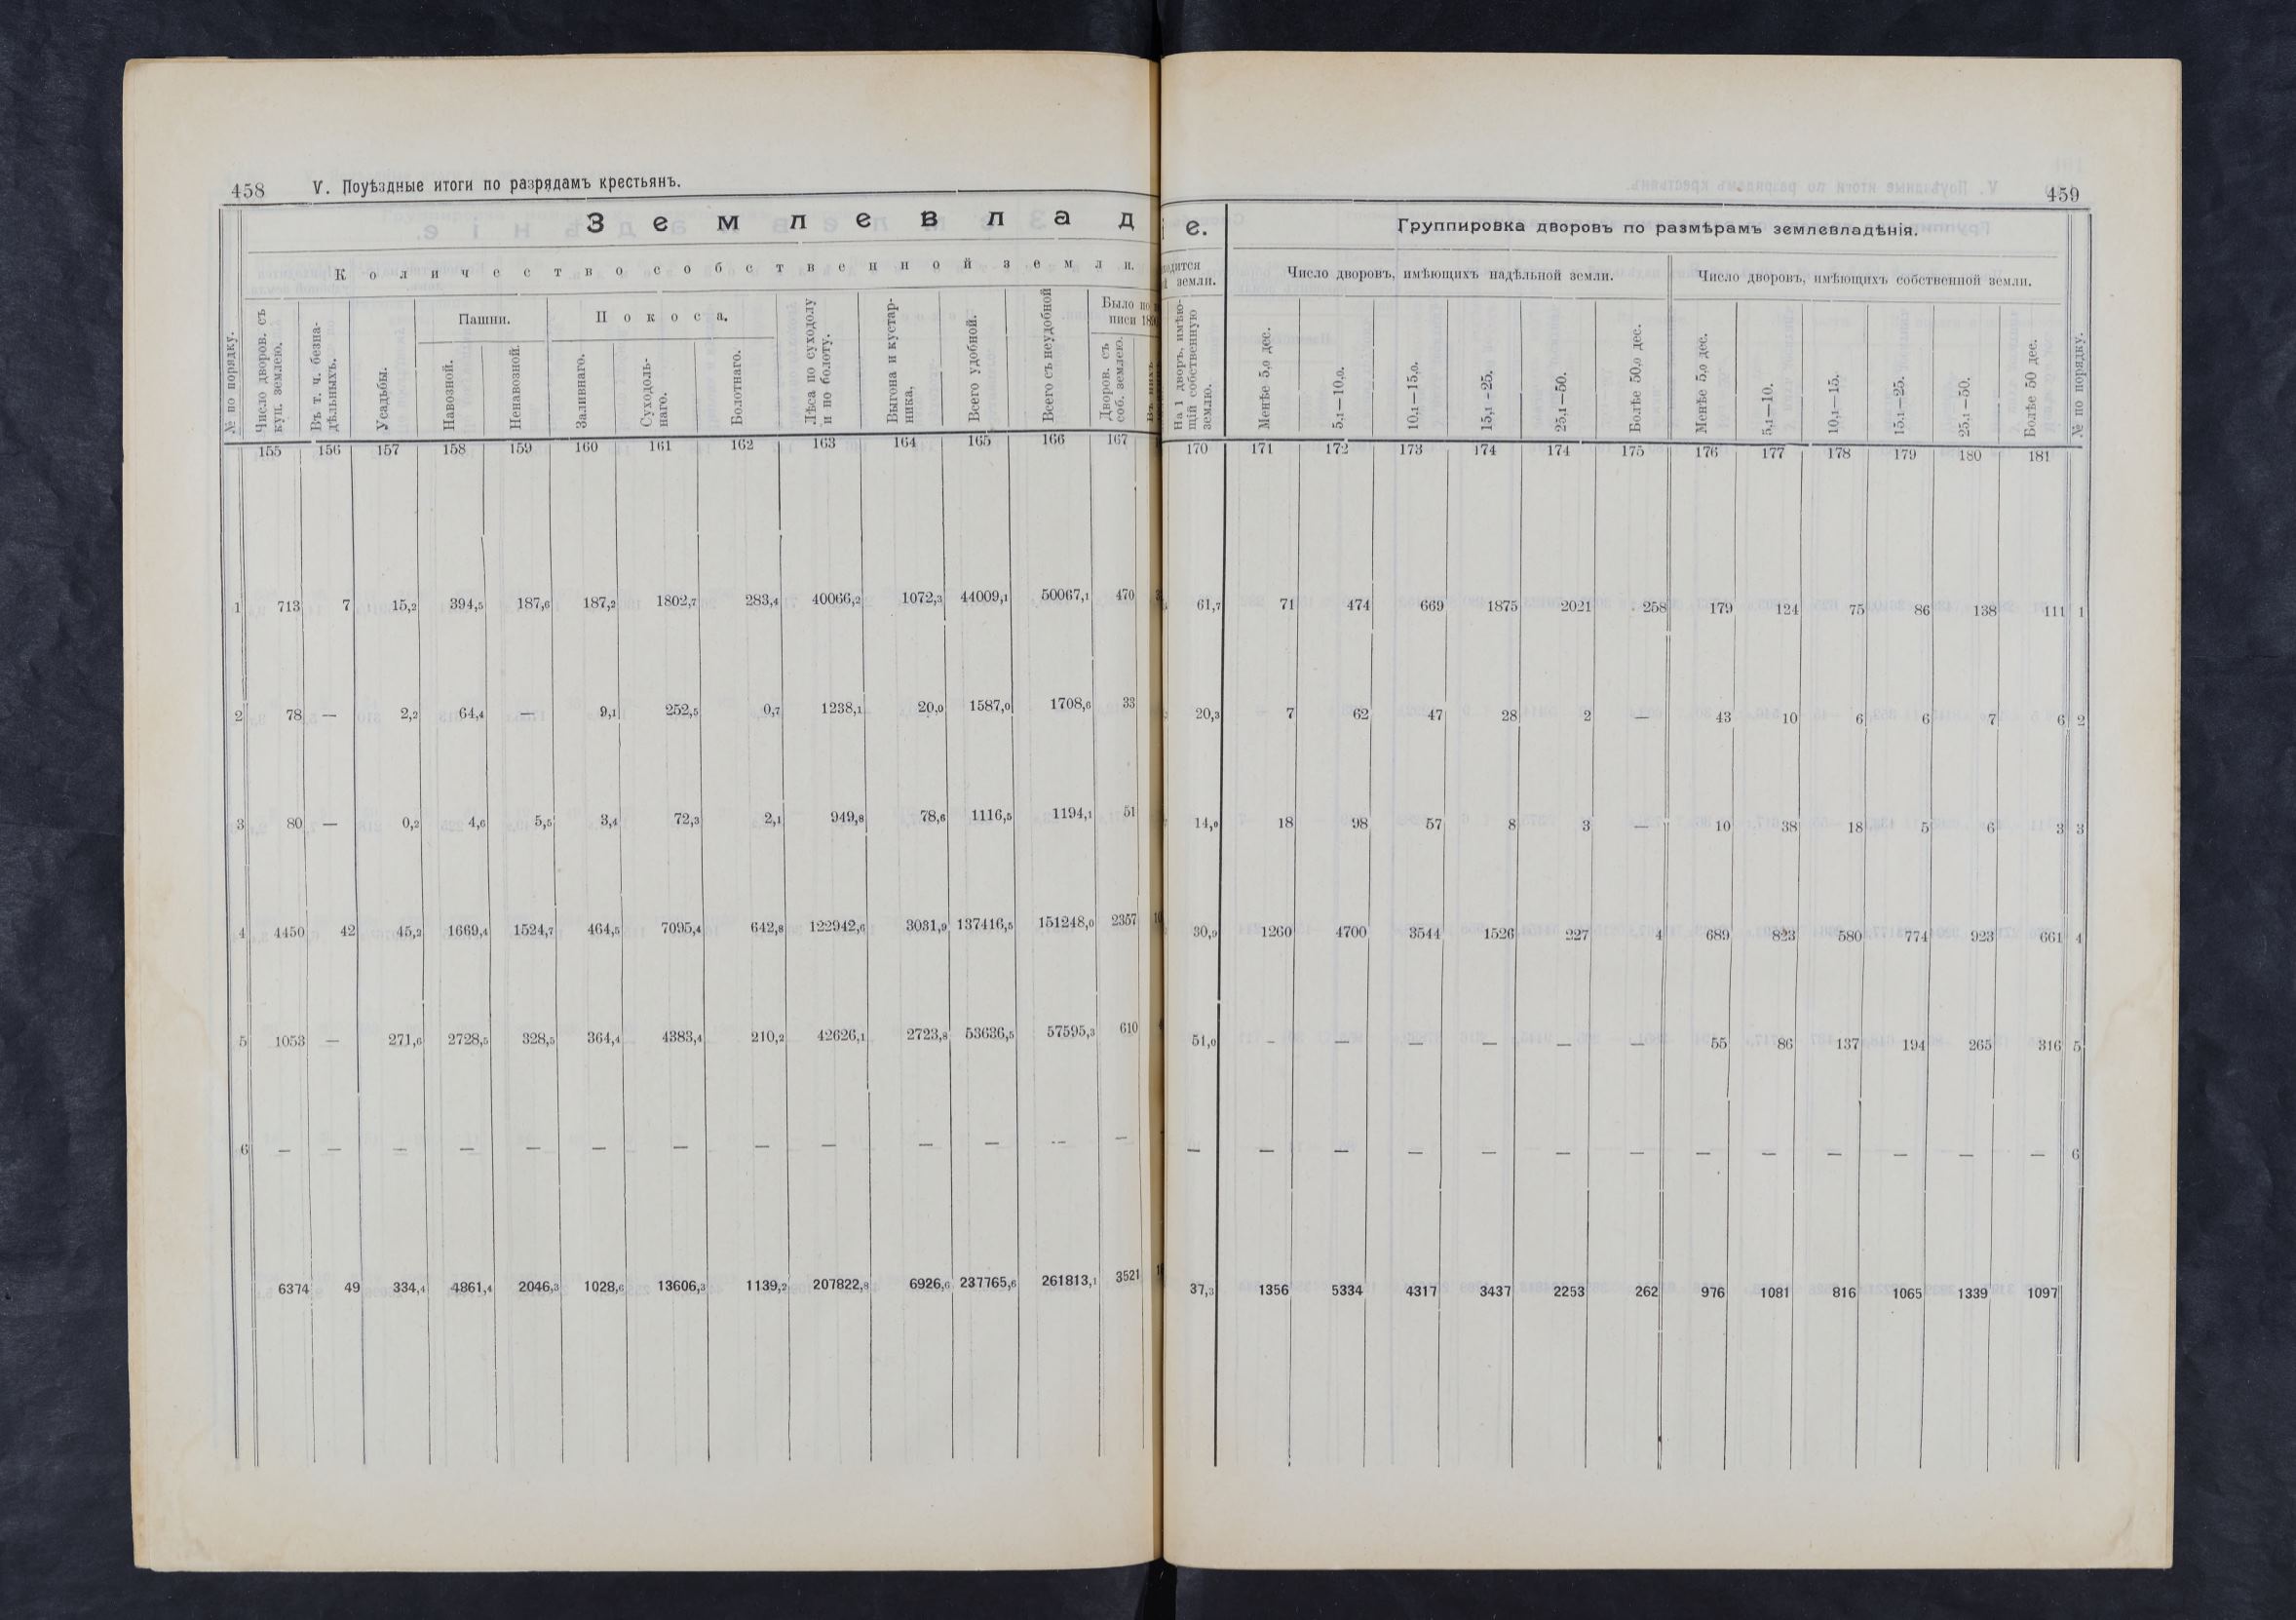 458 V. Поуѣздные итоги по разрядамъ крестьянъ.
Землевлад
Количество собственной земли.
№ по порядку.
Число дворов. съ куп. землею.
Въ т. ч. безнадѣльныхъ.
Усадьбы.
Пашни.
Навозной.
Ненавозной.
Покоса.
Заливнаго.
Суходольнаго.
Болотнаго.
Лѣса по суходолу и по болоту.
Выгона и кустарника.
Всего удобной.
Всего съ неудобной
Было по
писи
Дворов. съ соб. землею.
155 156 157 158 159 160 161 162 163 164 165 166 167
1 713 7 15,2 394,5 187,6 187,2 1802,7 283,4 40066,2 1072,3 44009,1 50067,1 470
2 78 — 2,2 64,4 — 9,1 252,5 0,7 1238,1 20,0 1587,0 1708,6 33
3 80 — 0,2 4,6 5,5 3,4 72,3 2,1 949,8 78,6 1116,5 1194,1 51
4 4450 42 45,2 1669,4 1524,7 464,5 7095,4 642,8 122942,6 3031,9 137416,5 151248,0 2357
5 1053 — 271,6 2728,5 328,5 364,4 4383,4 210,2 42626,1 2723,8 53636,5 57595,3 610
6 — — — — — — — — — — — — —
6374 49 334,4 4861,4 2046,3 1028,6 13606,3 1139,2 207822,8 6926,6 237765,6 261813,1 3521
459
е.
Группировка дворовъ по размѣрамъ землевладѣнія.
земли.
На 1 дворъ, имѣющій собственную землю.
Число дворовъ, имѣющихъ надѣльной земли.
Менѣе 5,0 дес.
5,1—10,0.
10,1—15,0.
15,1-25.
25,1—50.
Болѣе 50,0 дес.
Число дворовъ, имѣющихъ собственной земли.
Менѣе 5,0 дес.
5,1—10.
10,1—15.
15,1—25.
25,1—50.
Болѣе 50 дес.
№ по порядку.
170 171 172 173 174 174 175 176 177 178 179 180 181
61,7 71 474 669 1875 2021 258 179 124 75 86 138 111 1
20,3 7 62 47 28 2 — 43 10 6 6 7 6 2
14,9 18 98 57 8 3 — 10 38 18 5 6 3 3
30,9 1260 4700 3544 1526 227 4 689 823 580 774 923 661 4
51,0 — — — — — — 55 86 137 194 265 316 5
— — — — — — — — — — — — — 6
37,3 1356 5334 4317 3437 2253 262 976 1081 816 1065 1339 1097